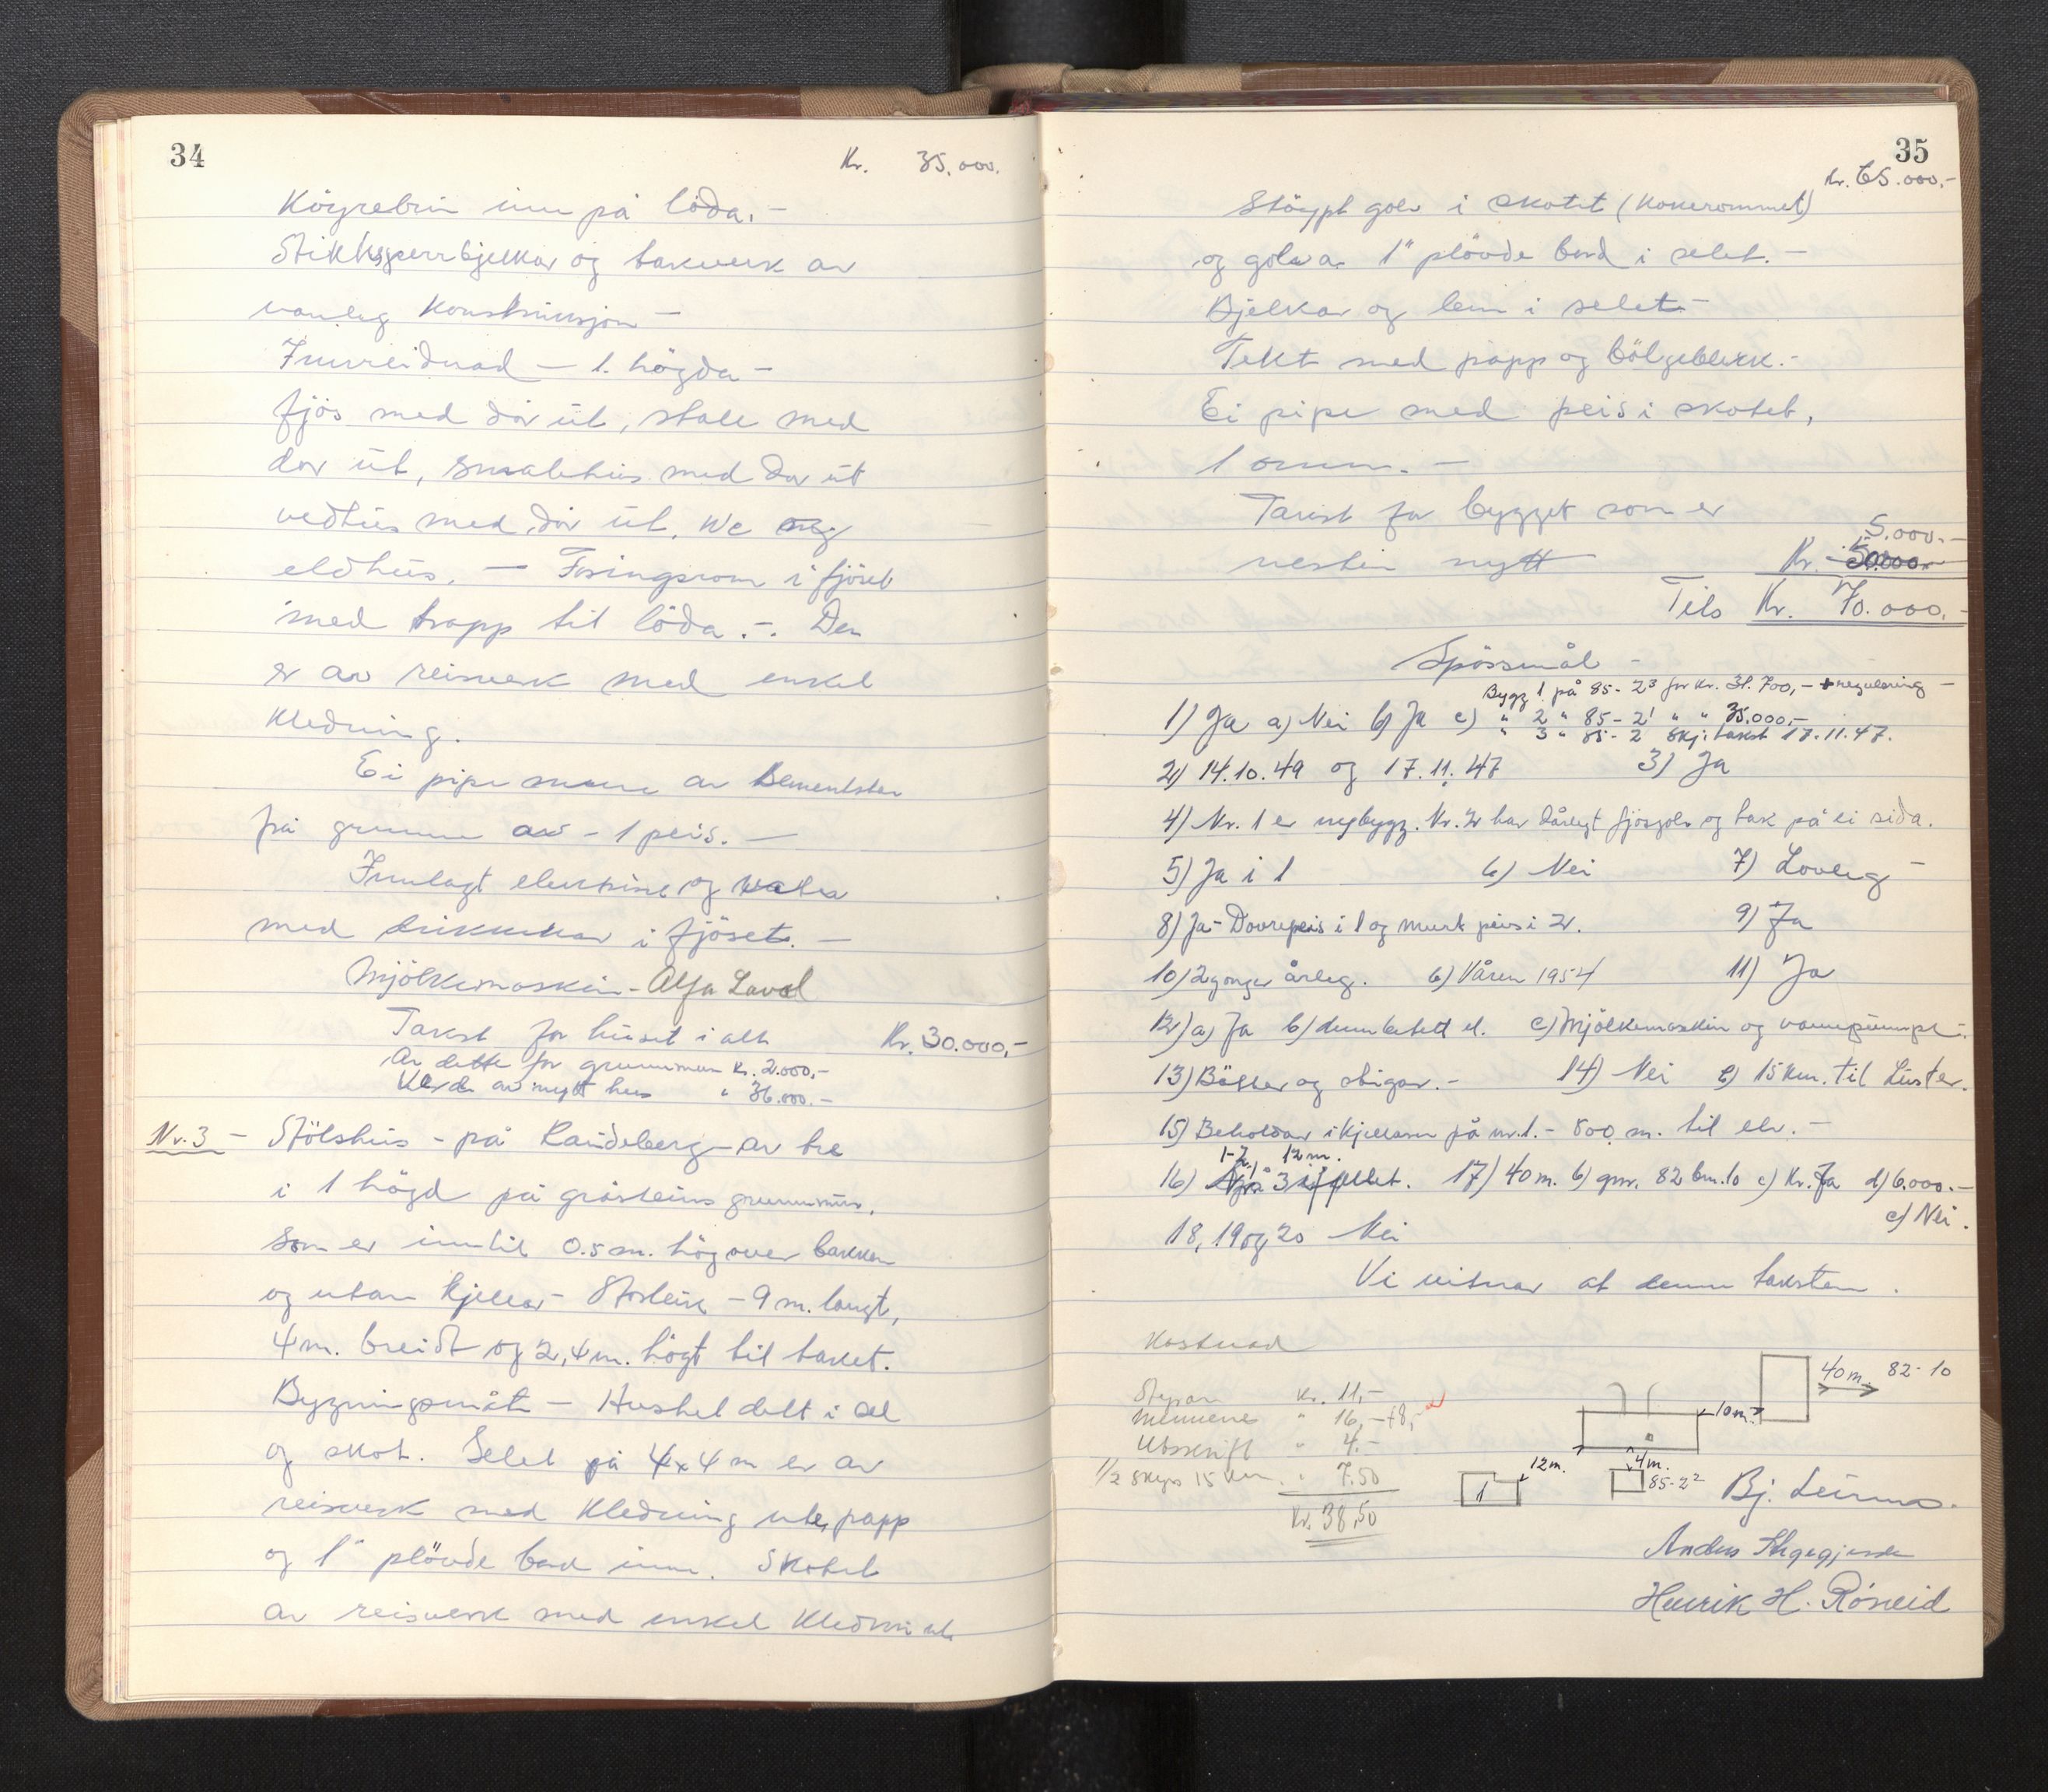 34
Kr. 35.000.
Köyrebru inn på löda. -
Stikksperrbjelkar og takverk av
vanleg Konstruksjon -
Innreidnad - 1. högda -
fjös med dör ut, stall med
dör ut, smalehus med dör ut
vedhus med dör ut, Wc og
eldhus. - Foringsrom i fjöset
med trapp til löda. -. Den
er av reisverk med enkel
Kledning.
Ei pipe av Sementstein
frå grunn av - 1 peis. -
Innlagt elektrisk og vatn
med drikkekar i fjöset. -
Mjölkemaskin - Alfa Laval
Takst for huset i alt Kr. 30.000,-
Av dette for grunnmur Kr. 2.000,-
Verde av nytt hus " 36.000.-
Nr. 3 - Stölshus - på Raudeberg - av tre
i 1 högd på gråsteins grunnmur,
som er inntil 0.5 m. hög over bakken
og utan kjellar - Storleik - 9 m. langt,
4 m. breidt og 2,4 m. högt til taket.
Bygningsmåte - Huset delt i sel
og skot. Selet på 4x4 m er av
reisverk med Kledning ute, papp
og 1" plöyde bord inne. Skotet
av reisverk med enkel Kledni ute
35
Kr. 65.000,-
Stöypt golv i skotet (Kokerommet)
og golv av 1" plöyde bord i selet. -
Bjelkar og lem i selet -
Tekt med papp og bölgeblekk. -
Ei pipe med peis i skotet,
1 omn. -
Takst for bygget som er
5.000.-
nesten nytt Kr. 50.000.-
Tils Kr. 70.000.-
Spörsmål -
Bygg 1 på 85 - 2³ for kr. 31.700,- + regulering -
1) Ja a) Nei b) Ja c) " 2 " 85 - 2¹ " " 35.000,-
" 3 " 85 - 2 skj. takst 17.11.47.
2) 14.10.49 og 17.11.47 3) Ja
4) Nr. 1 er nybygg. Nr. 2 har dårlegt fjösgolv og tak på ei sida.
5) Ja i 1 6) Nei 7) Loveg -
8) Ja - Dovrepeis i 1 og murt peis i 2. 9) Ja
10) 2 gonger årleg. b) Våren 1954 11) Ja
12) a) Ja b) el. c) Mjölkemaskin og vasspumpe.
13) Bötter og stigar. - 14) Nei b) 15 km. til Luster.
15) Beholdar i kjellaren på nr. 1. - 800 m. til elv. -
1-2, 12 m.
16) 3 i fjellet. 17) 40 m. b) gnr. 82 bn. 10 c) Kr. Ja d) 6.000.-
e) Nei.
18, 19 og 20 Nei
Vi vitnar at denne taksten.
Kostnad
Styrar Kr. 11,-
Mennene " 16,- +8,-
Utskrift " 4.-
1/2 skyss 15 km. " 7.50
Kr. 38,50
40 m. 82 - 10
10 m.
12 m.
4 m.
1
85-2²
Bj. Leirmo.
Anders
Henrik H. Röneid